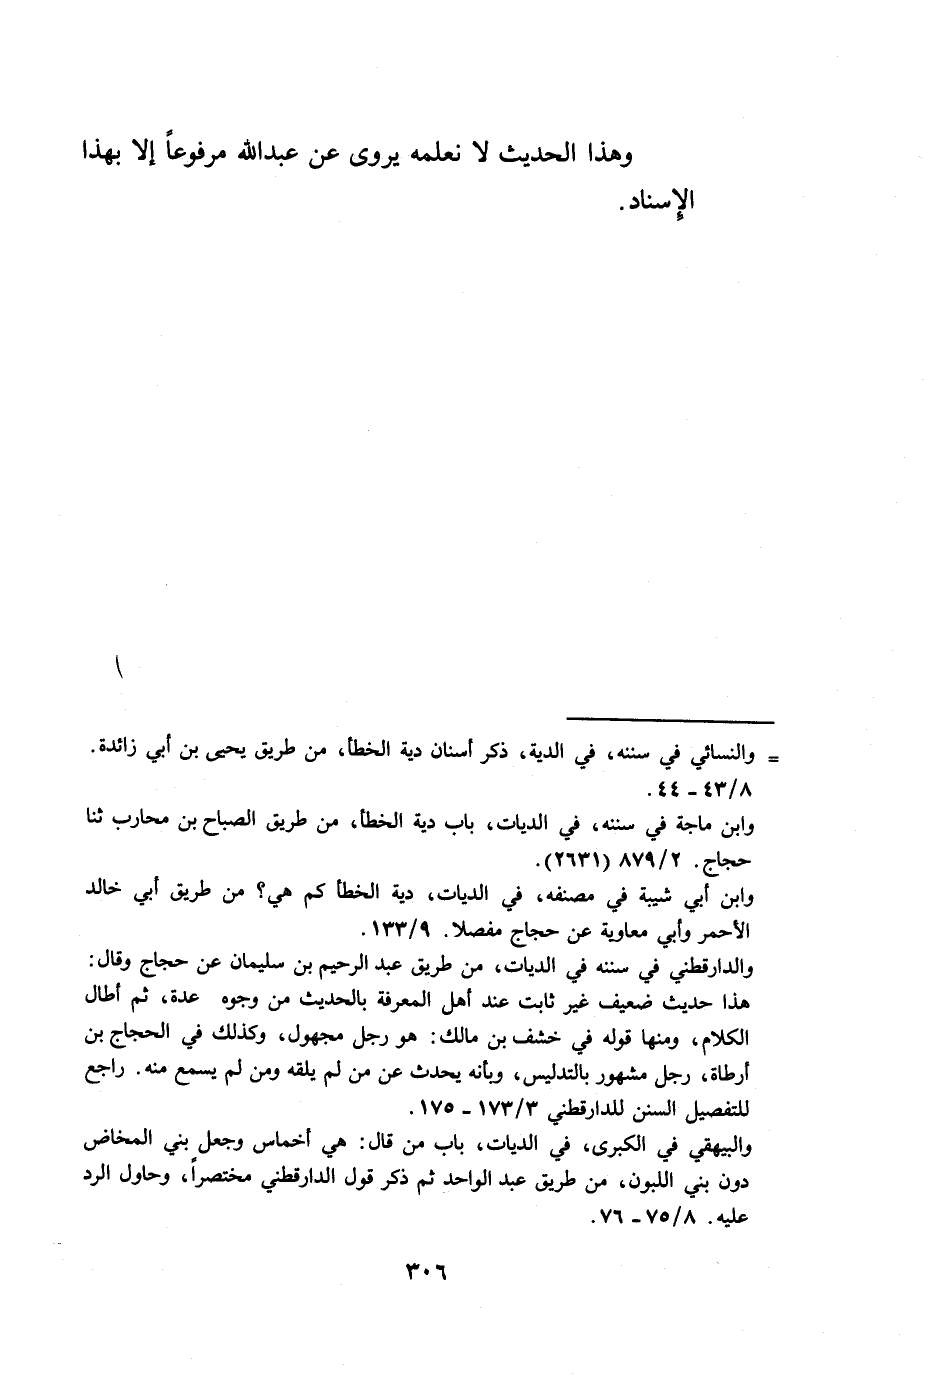 وهذا الحديث لا نعلمه يروى عن عبدالله مرفوعاً إلا بهذا
الإسناد.
= والنسائي في سننه، في الدية، ذكر أسنان دية الخطأ، من طريق يحيى بن أبي زائدة.
٤٣/٨ ـ ٤٤.
وابن ماجة في سننه، في الديات، باب دية الخطأ، من طريق الصباح بن محارب ثنا
حجاج. ٨٧٩/٢ (٢٦٣١).
وابن أبي شيبة في مصنفه، في الديات، دية الخطأ كم هي؟ من طريق أبي خالد
الأحمر وأبي معاوية عن حجاج مفصلا. ١٣٣/٩.
والدارقطني في سننه في الديات، من طريق عبد الرحيم بن سليمان عن حجاج وقال:
هذا حديث ضعيف غير ثابت عند أهل المعرفة بالحديث من وجوه عدة، ثم أطال
الكلام، ومنها قوله في خشف بن مالك: هو رجل مجهول، وكذلك في الحجاج بن
أرطاة، رجل مشهور بالتدليس، وبأنه يحدث عن من لم يلقه ومن لم يسمع منه. راجع
للتفصيل السنن للدارقطني ١٧٣/٣ ـ ١٧٥.
والبيهقي في الكبرى، في الديات، باب من قال: هي أخماس وجعل بني المخاض
دون بني اللبون، من طريق عبد الواحد ثم ذكر قول الدارقطني مختصراً، وحاول الرد
عليه. ٧٥/٨ ـ ٧٦.
٣٠٦